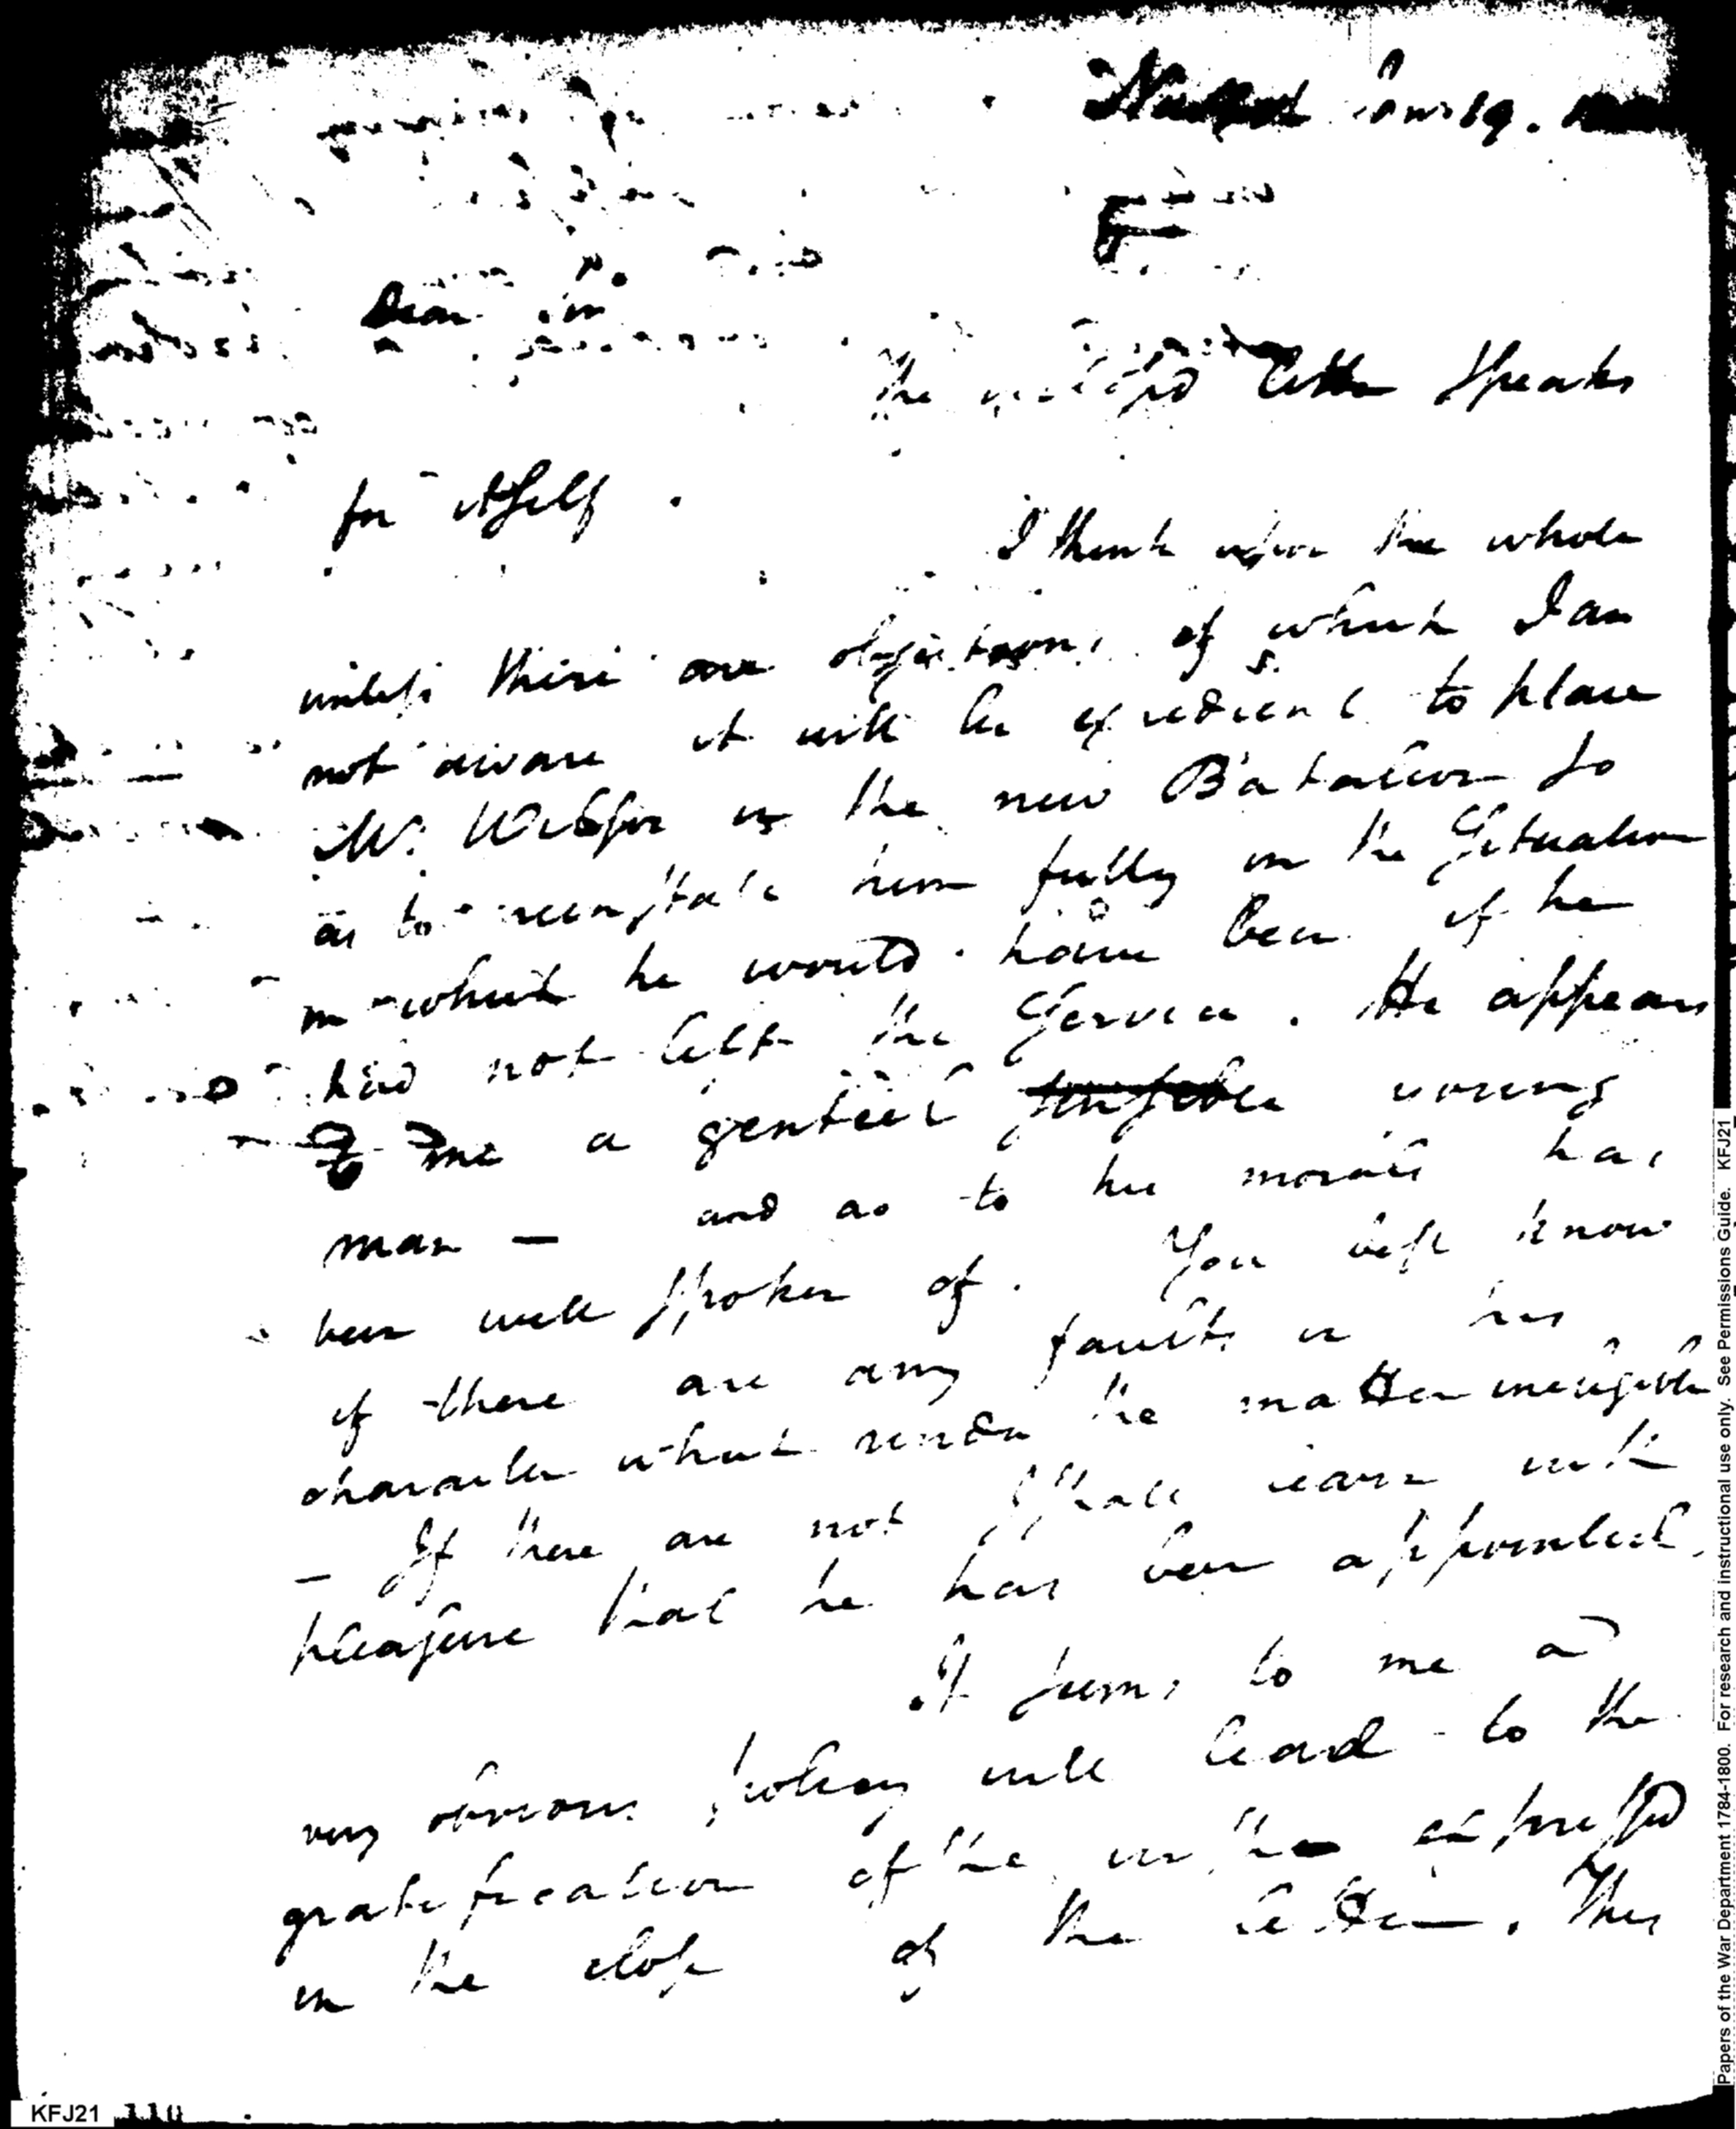 Dear Sir
The letter speaks
for itself.
I think upon the whole
unless there are objections of which I am
not aware it will be expedient to place
Mr. in the new Batalion so
as to reinstate him fully in the Situation
in which he would have been if he
had not left the Service. He appears
to me a genteel sensible young
man — and as to his morals has
been well spoken of. You best know
if there are any faults in his
character which render the matter ineligible
— If there are not I shall learn with
pleasure that he has been appointed.
It seems to me a
very obvious policy will lead to the
gratification of the wish expressed
in the close of the letter. This
KFJ21
Papers of the War Department 1784-1800. For research and instructional use only. See Permissions Guide. KFJ21